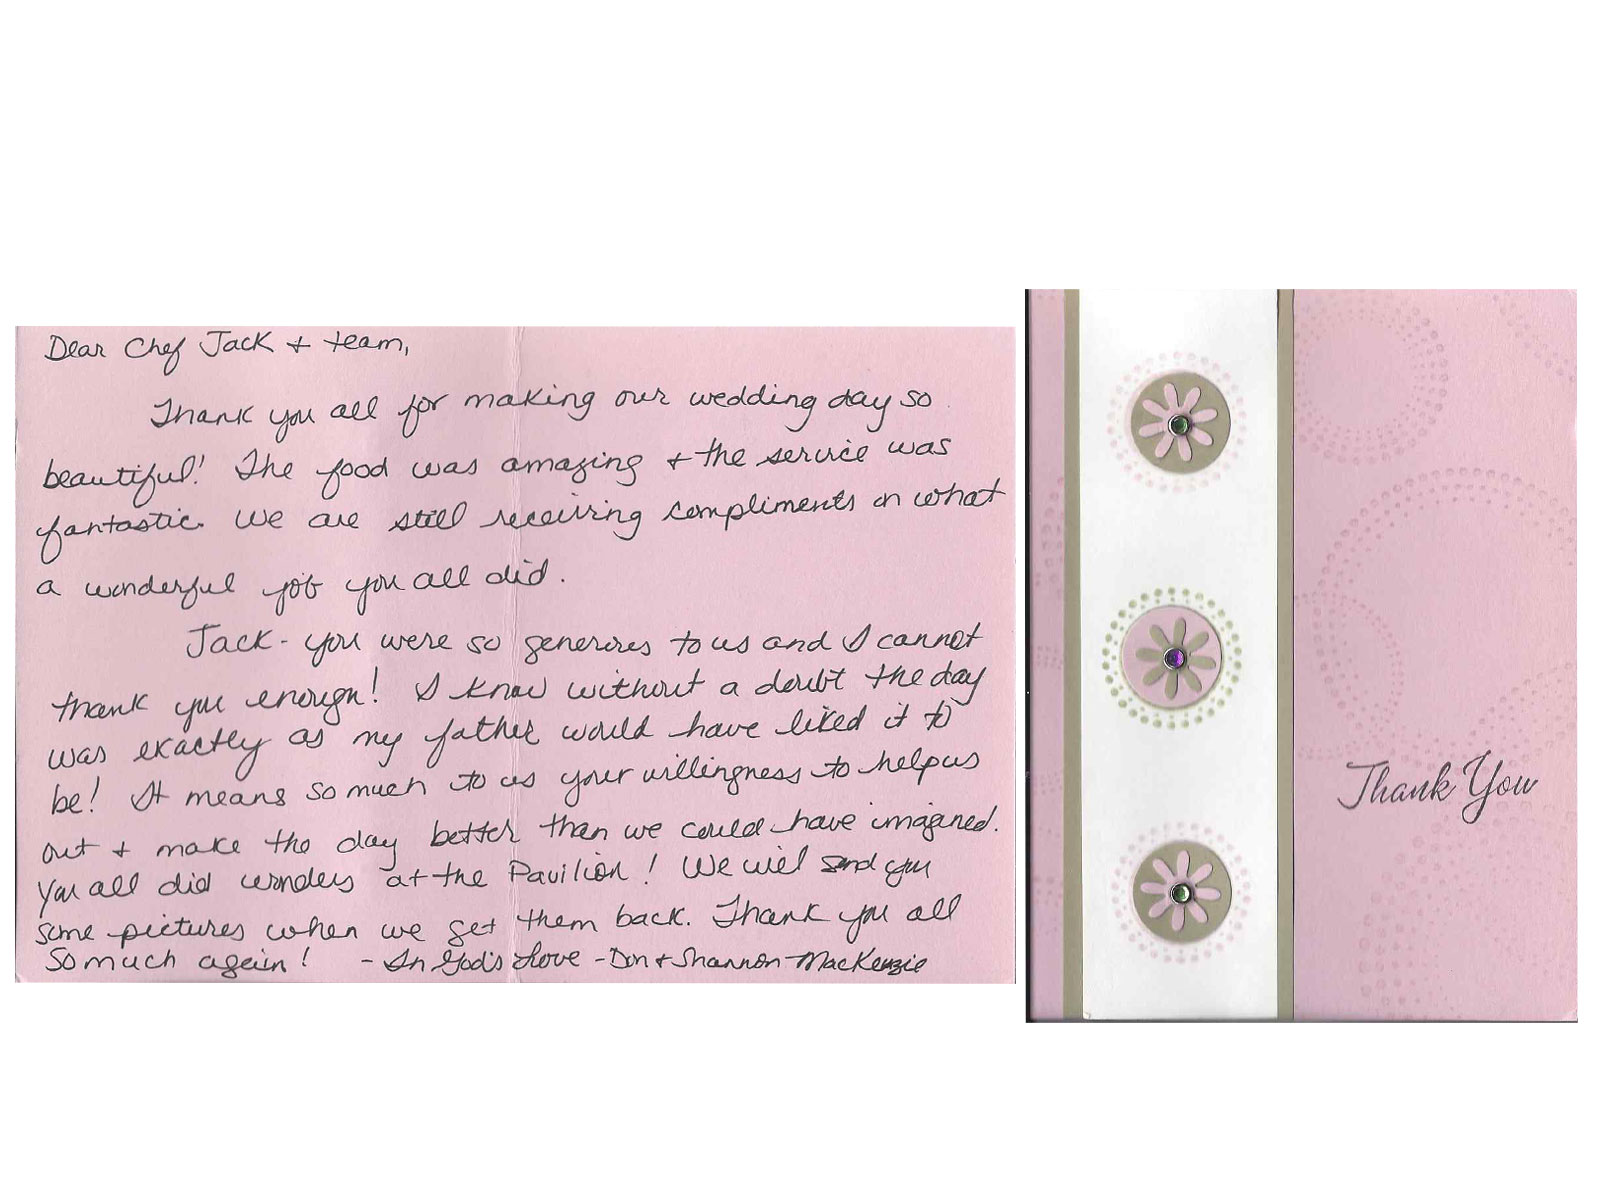 Dear Chef Jack + team,
Thank you all for making our wedding day so
beautiful! The food was amazing + the service was
fantastic. We are still receiving compliments on what
a wonderful job you all did.
Jack - you were so generous to us and I cannot
thank you enough! I know without a doubt the day
was exactly as my father would have liked it to
be! It means so much to us your willingness to help us
out + make the day better than we could have imagined.
You all did wonders at the Pavilion! We will send you
some pictures when we get them back. Thank you all
so much again! - In God's Love - Don + Shannon MacKenzie
Thank You